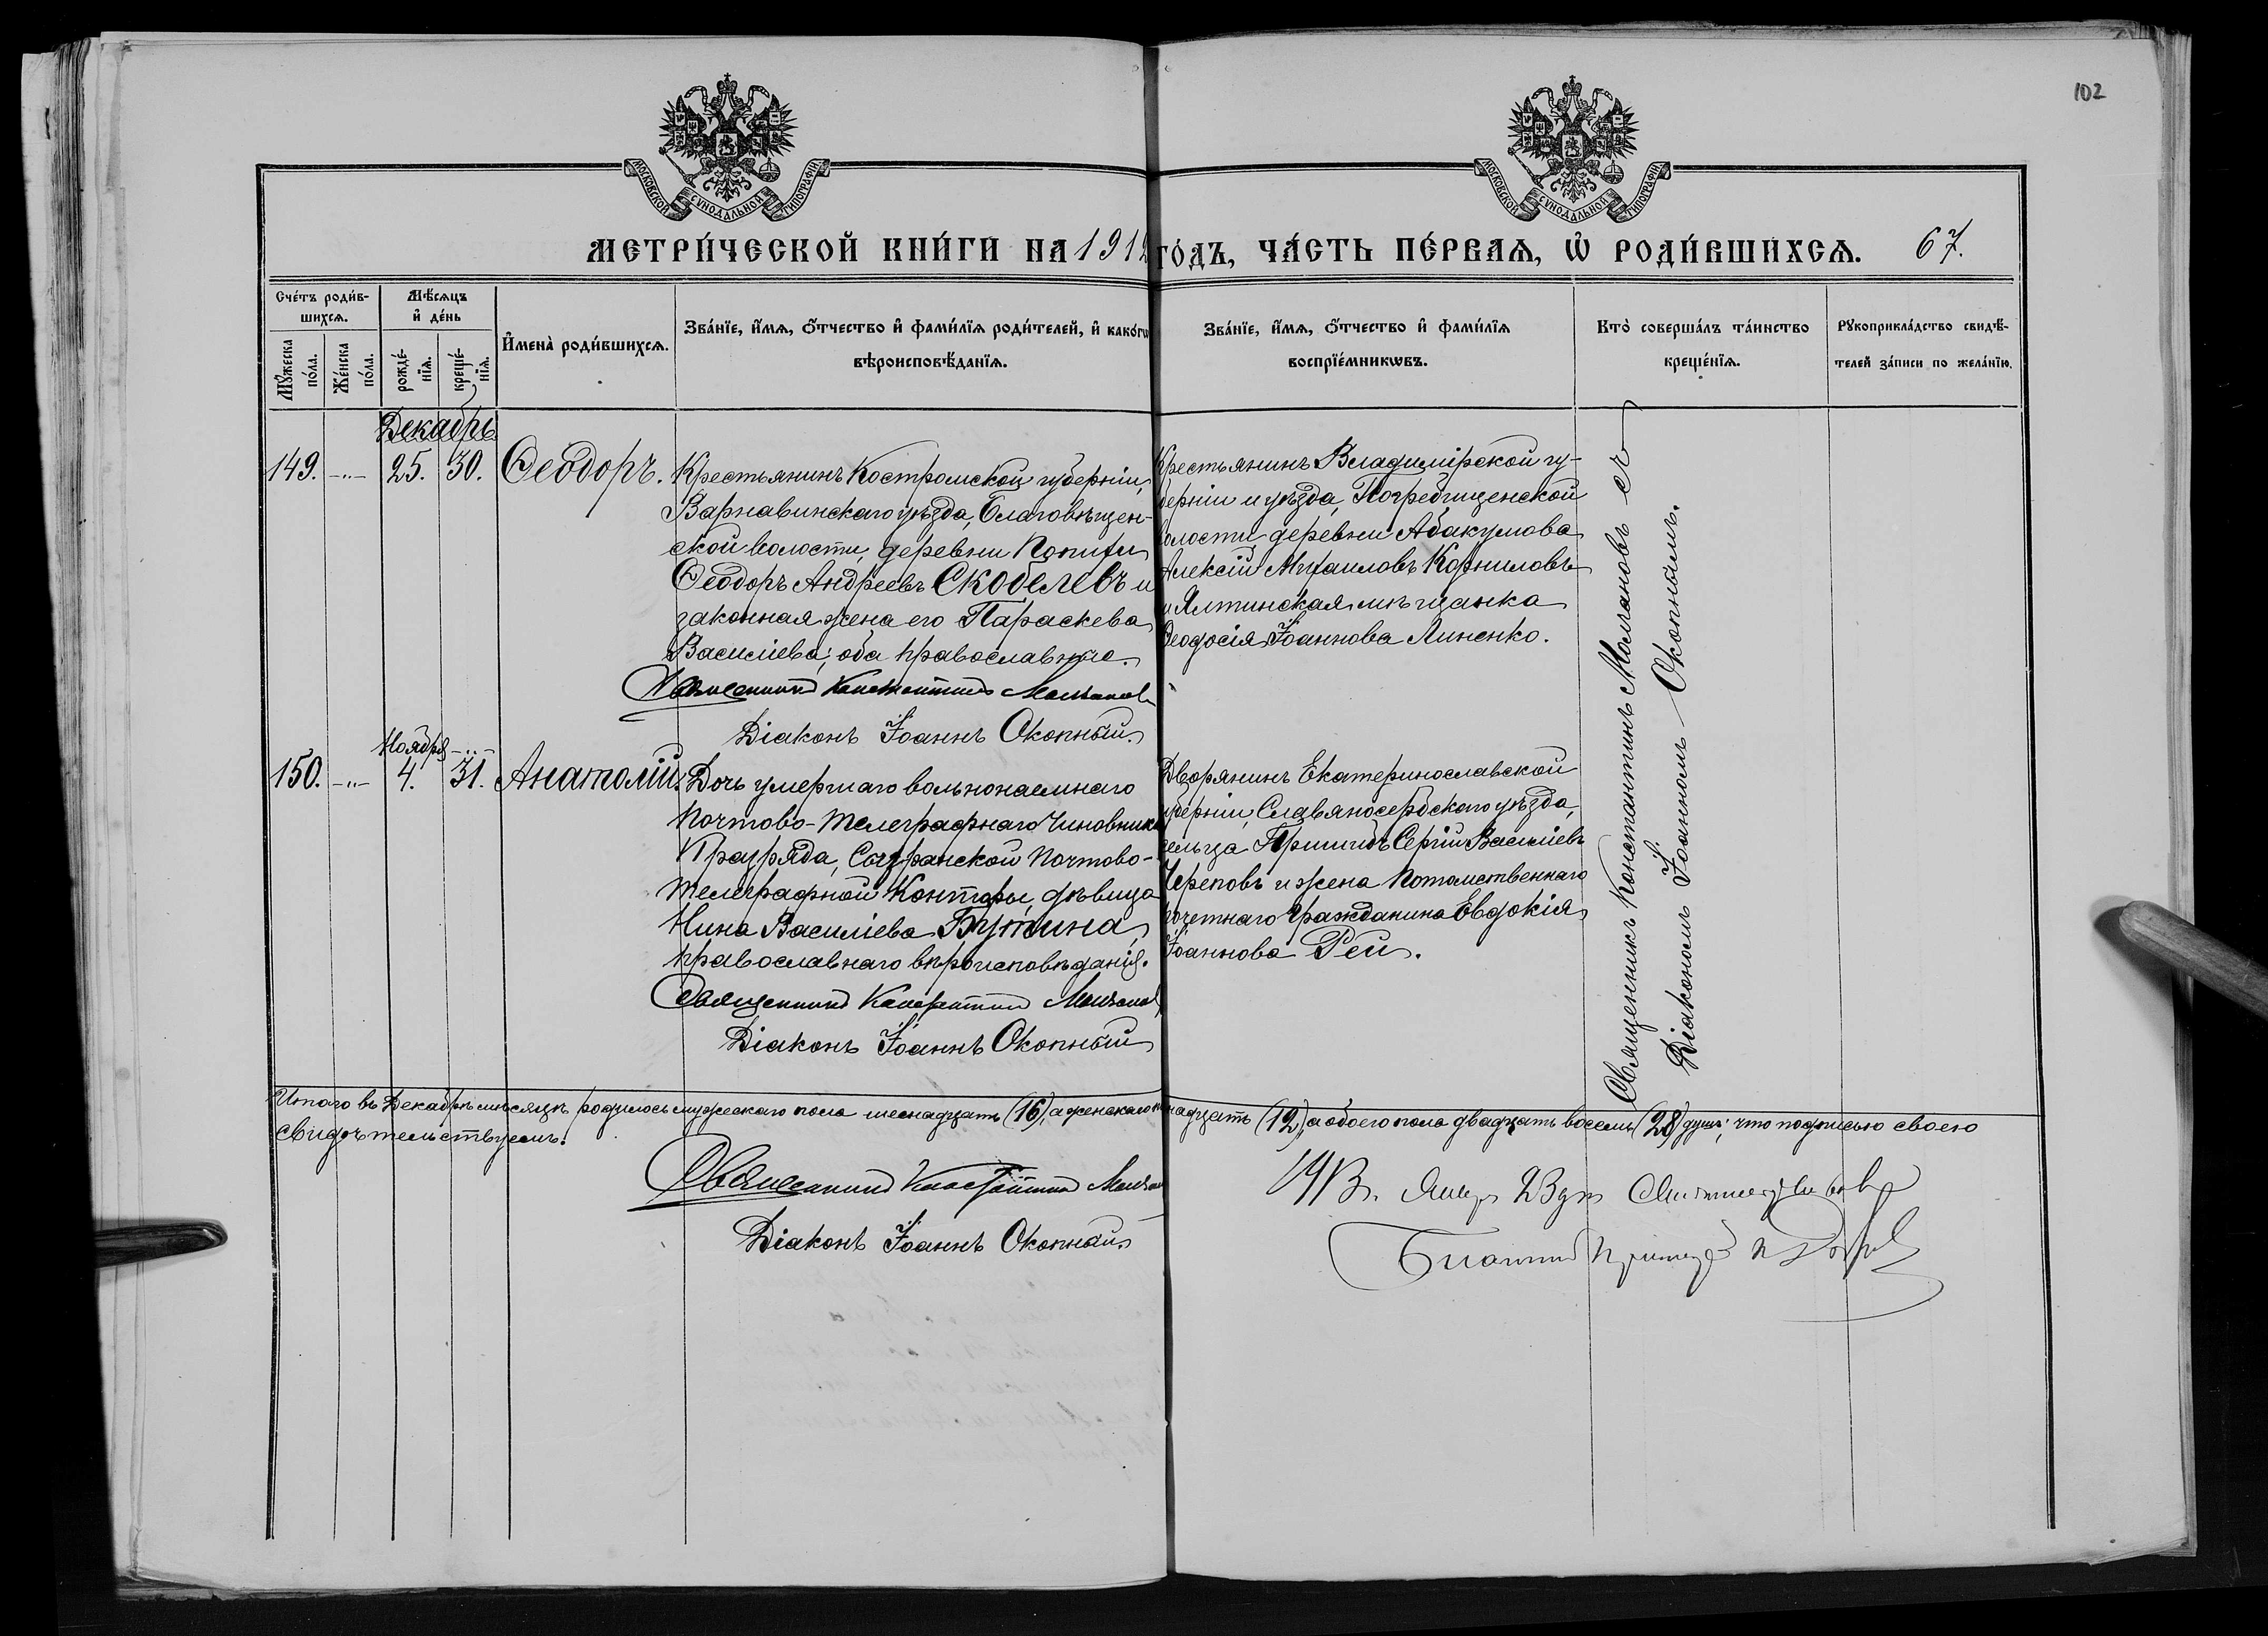 102
МОСКОВСКОЙ СѴНОДАЛЬНОЙ ТИПОГРАФІИ
МОСКОВСКОЙ СѴНОДАЛЬНОЙ ТИПОГРАФІИ
МЕТРИ́ЧЕСКОЙ КНИ́ГИ НА 1912 ГО́ДЪ, ЧА́СТЬ ПЕ́РВАѦ, Ѡ҆ РОДИ́ВШИХСѦ. 67.
Сче́тъ роди́в-
шихсѧ.
Мѣ́сѧцъ
и҆ де́нь
Мꙋ́жеска
по́ла.
Же́нска
по́ла.
рожде́-
нїѧ.
креще́-
нїѧ.
И҆мена̀ роди́вшихсѧ.
Зва́нїе, и҆́мѧ, ѻ҆́тчество и҆ фами́лїѧ роди́телей, и҆ како́гѡ
вѣроисповѣ́данїѧ.
Зва́нїе, и҆́мѧ, ѻ҆́тчество и҆ фами́лїѧ
воспрїе́мникѡвъ.
Кто̀ соверша́лъ та́инство
креще́нїѧ.
Рꙋкоприкла́дство свидѣ́-
телей за́писи по жела́нїю.
Декабрь
149. -"- 25. 30. Ѳеодоръ.
Крестьянинъ Костромской губерніи,
Варнавинскаго уѣзда, Благовѣщен-
ской волости, деревни
Ѳеодоръ Андреевъ Скобелевъ и
законная жена его Параскева
Василіева, оба православные.
Священникъ Константинъ Молчановъ
Діаконъ Іоаннъ Окопный.
Крестьянинъ Владимірской гу-
берніи и уѣзда, Погребищенской
волости деревни Абакумова
Алексій Михаиловъ Корниловъ
и Ялтинская мѣщанка
Ѳеодосія Іоаннова Линенко.
Ноября -"-
150. -"- 4. 31. Анатолій.
Дочь умершаго вольнонаемнаго
Почтово-Телеграфнаго Чиновника
разряда, Сызранской Почтово-
Телеграфной Конторы, дѣвица
Нина Василіева Бутина,
православнаго вѣроисповѣданія.
Священникъ Константинъ Молчановъ
Діаконъ Іоаннъ Окопный
Дворянинъ Екатеринославской
губерніи, Славяносербскаго уѣзда,
сельца Пришибъ Сергій Василіевъ
Череповъ и жена Потомственнаго
почетнаго Гражданина Евдокія
Іоаннова Рей.
Священникъ Константинъ Молчановъ съ
Діакономъ Іоанномъ Окопнымъ.
Итого въ Декабрѣ мѣсяцѣ родилось мужескаго пола шеснадцать (16), а женскаго надцать (12), а обоего пола двадцать восемь (28) душъ; что подписью своею
свидѣтельствуемъ.
Священникъ Константинъ Молчановъ
Діаконъ Іоаннъ Окопный.
1913